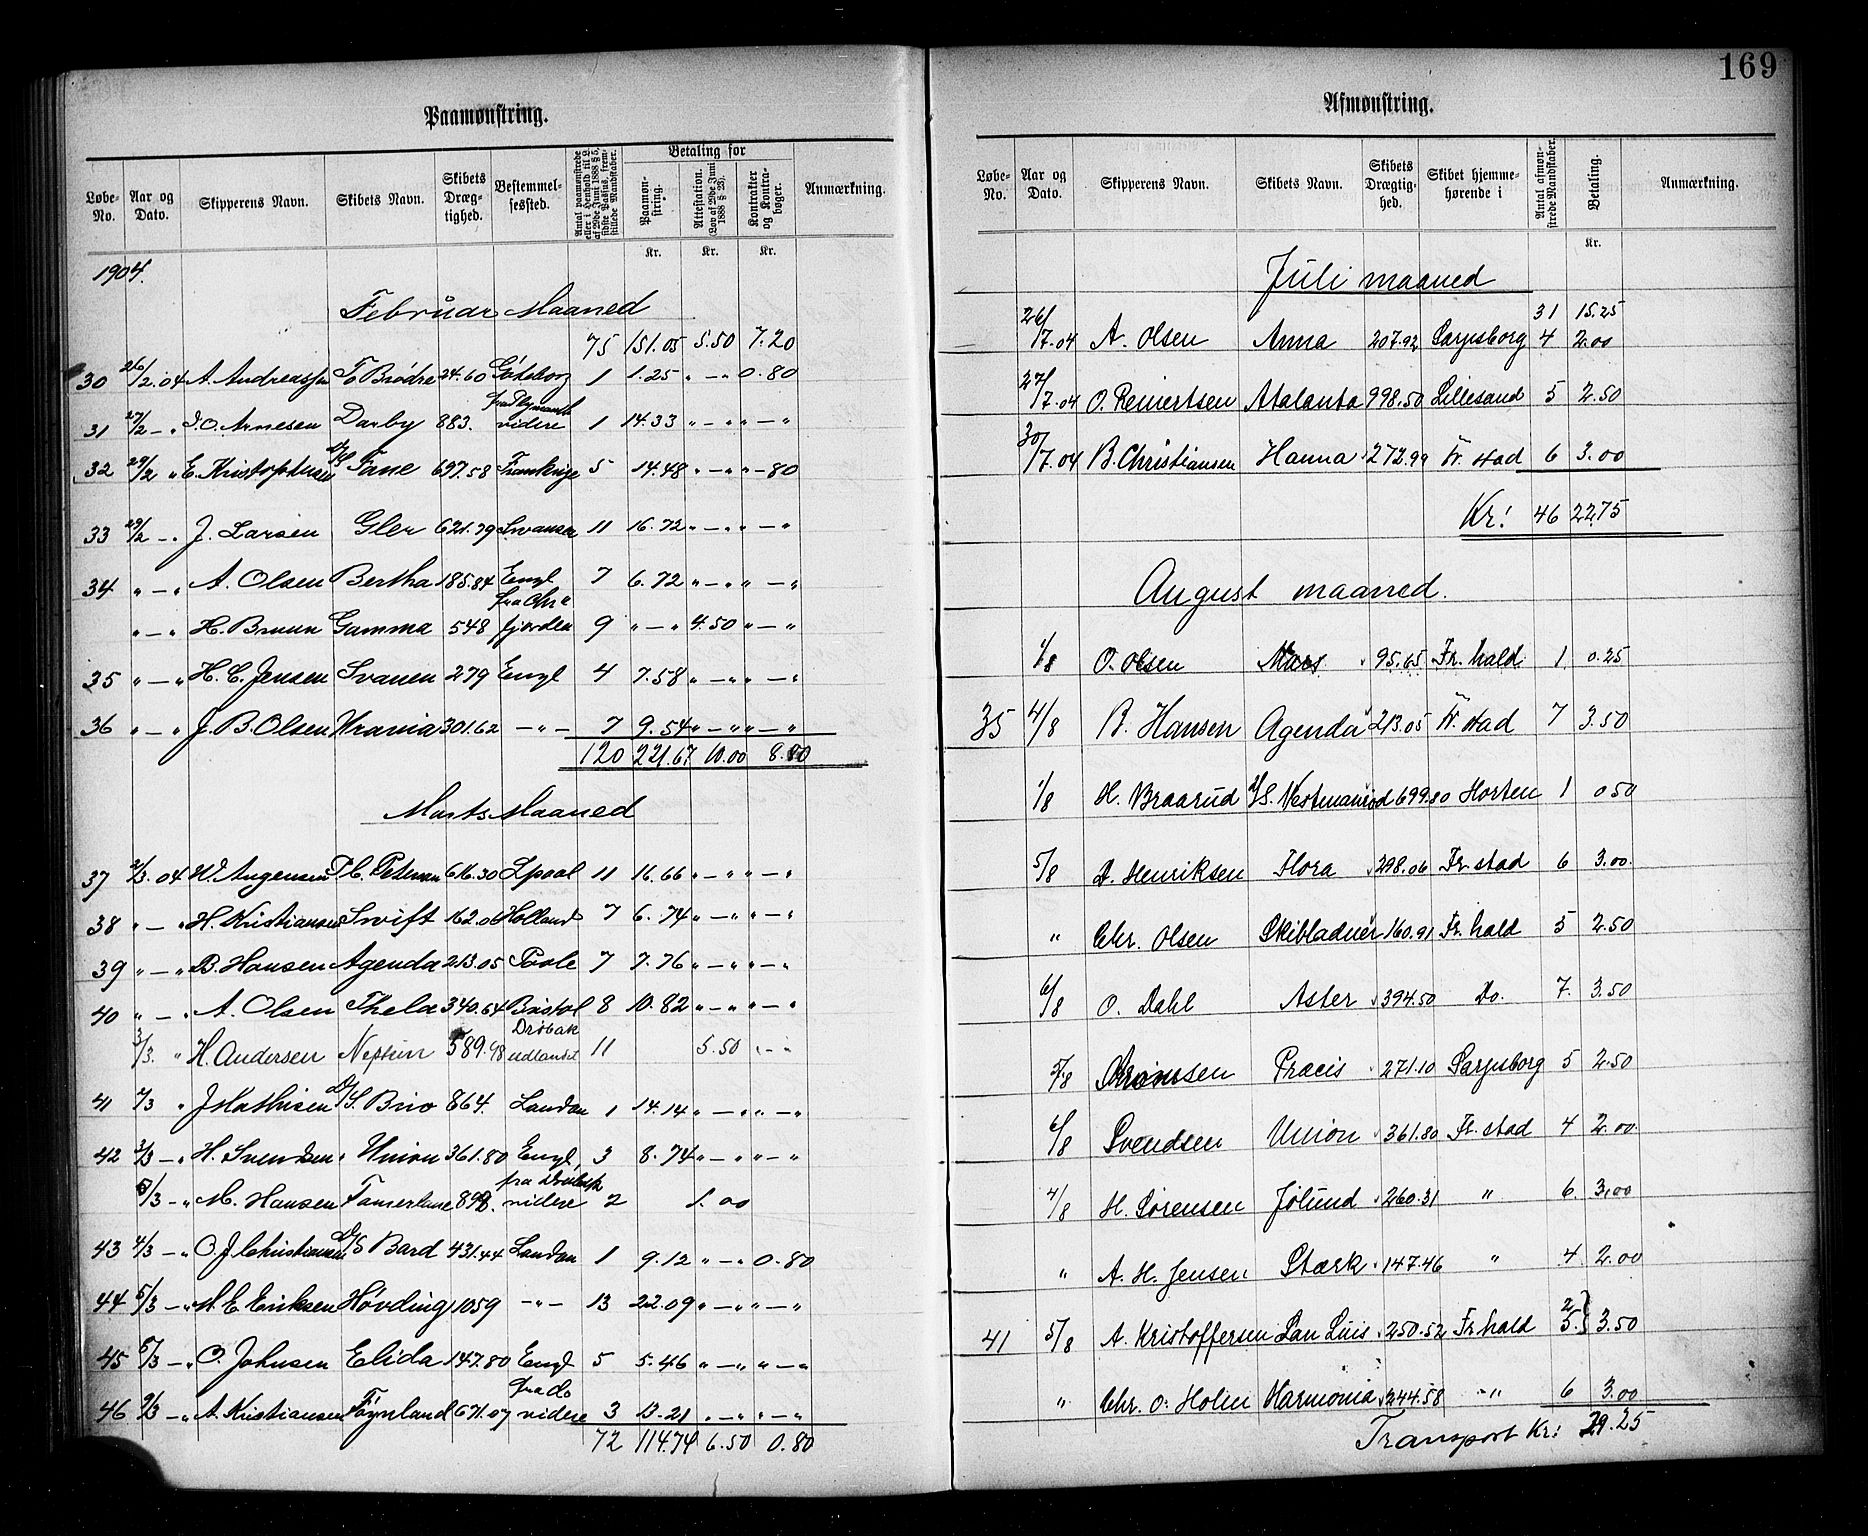 169
Paamønstring.
Løbe-No. Aar og Dato. Skipperens Navn. Skibets Navn. Skibets Dræg-tighed. Bestemmel-sessted. Antal paamønstrede eller i Henhold til L. af 29de Juni 1888 § 5, sidste Passus, frem-stillede Mandskaber. Betaling for Paamøn-string. Attestation. (Lov af 29de Juni 1888 § 23). Kontrakter og Kontra-bøger. Anmærkning.
Kr. Kr. Kr.
1904.
Februar Maaned
75 151.05 5.50 7.20
30 26/2.04 A. Andreassen To Brødre 24.60 Göteborg 1 1.25 " — " 0.80
31 27/2 — " J.O. Arnesen Darby 883. fra Plymouth videre 1 14.33 " — " " — "
32 29/2 " E. Kristophersen D/S Tane 697.58 Frankrige 5 14.48 " — " " — 80
33 29/2 — " J. Larsen Gler 621.79 Swansea 11 16.72 " — " " — "
34 " — " A. Olsen Bertha 185.84 Engl 7 6.72 " — " " — "
" — " H. Bruun Gamma 548 fra Chr.a fjorden 9 " — " 4.50 " — "
35 " — " H. C. Jensen Svanen 279 Engl 4 7.58 " — " " — "
36 " — " J. B. Olsen Urania 301.62 — " — 7 9.54 " — " " — "
120 221.67 10.00 8.80
Marts Maaned
37 2/3.04 W. Jørgensen P.C. Petersen 616.30 Lpool 11 16.66 " — " " — "
38 " — " H. Kristiansen Swift 162.06 Holland 7 6.74 " — " " — "
39 " — " B. Hansen Agenda 213.05 Poole 7 7.76 " — " " — "
40 " — " A. Olsen Thela 340.64 Bristol 8 10.82 " — " " — "
3/3. " H. Andersen Neptun 589.98 Drøbak udlandet 11 5.50 " — "
41 2/3 " J. Mathisen D/S. Brio 864. London 1 14.14 " — " " — "
42 3/3 — " H. Svendsen Union 361.80 Engl, 3 8.74 " — " " — "
5/3 — " M. Hansen Tamerlane 898. fra Drøbak videre 2 1.00
43 4/3 — " O. J. Christiansen D/S Bard 431.44 London 1 9.12 " — " 0.80
44 5/3 — " M. E. Eriksen Høvding 1059 — " — 13 22.09 " — " " — "
45 5/3 — " O. Johnsen Elida 147.80 Engl 5 5.46 " — " " — "
46 9/3 — " A. Kristiansen Føynland 671.07 fra do videre 3 13.21 " — " " — "
72 114.74 6.50 0.80
Afmønstring.
Løbe-No. Aar og Dato. Skipperens Navn. Skibets Navn. Skibets Drægtig-hed. Skibet hjemme-hørende i Antal afmøn-strede Mandskaber. Betaling. Anmærkning.
Kr.
Juli maaned
31 15.25
26/7.04 A. Olsen Anna 207.92 Sarpsborg 4 2.00
27/7.04 O. Reinertsen Atalanta 998.50 Lillesand 5 2.50
30/7.04 B. Christiansen Hanna 272.99 Fr. stad 6 3.00
Kr: 46 22.75
August maaned.
1/8 O. Olsen Mars 95.65 Fr. hald 1 0.25
35 4/8 B. Hansen Agenda 213.05 Fr. stad 7 3.50
1/8 H. Braarud D/S. Vestmanrød 699.80 Horten 1 0.50
5/8 D. Henriksen Flora 298.06 Fr. stad 6 3.00.
" Chr. Olsen Skibladner 160.91 Fr. hald 5 2.50
6/8 O. Dahl Aster 394.50 Do. 7. 3.50
5/8 Præcis 271.10 Sarpsborg 5 2.50
6/8 Svendsen Union 361.80 Fr. stad 4 2.00
4/8 H. Sørensen Jølund 260.31 " 6. 3.00
" A. H. Jensen Stærk 147.46 " 4. 2.00
41 5/8 A. Kristoffersen San Luis 250.52 Fr hald 2 5.} 3.50
" Chr. O. Holm Harmonia 244.58 — " — 6 3.00
Transport Kr: 29.25